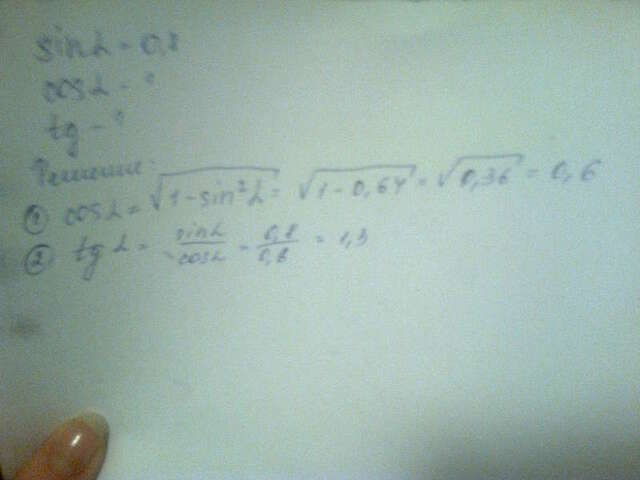 sin α = 0,8
cos α - ?
tg - ?
Решение:
① cos α = √1 - sin² α = √1 - 0,64 = √0,36 = 0,6
② tg α = sin α / cos α = 0,8 / 0,6 = 1,3